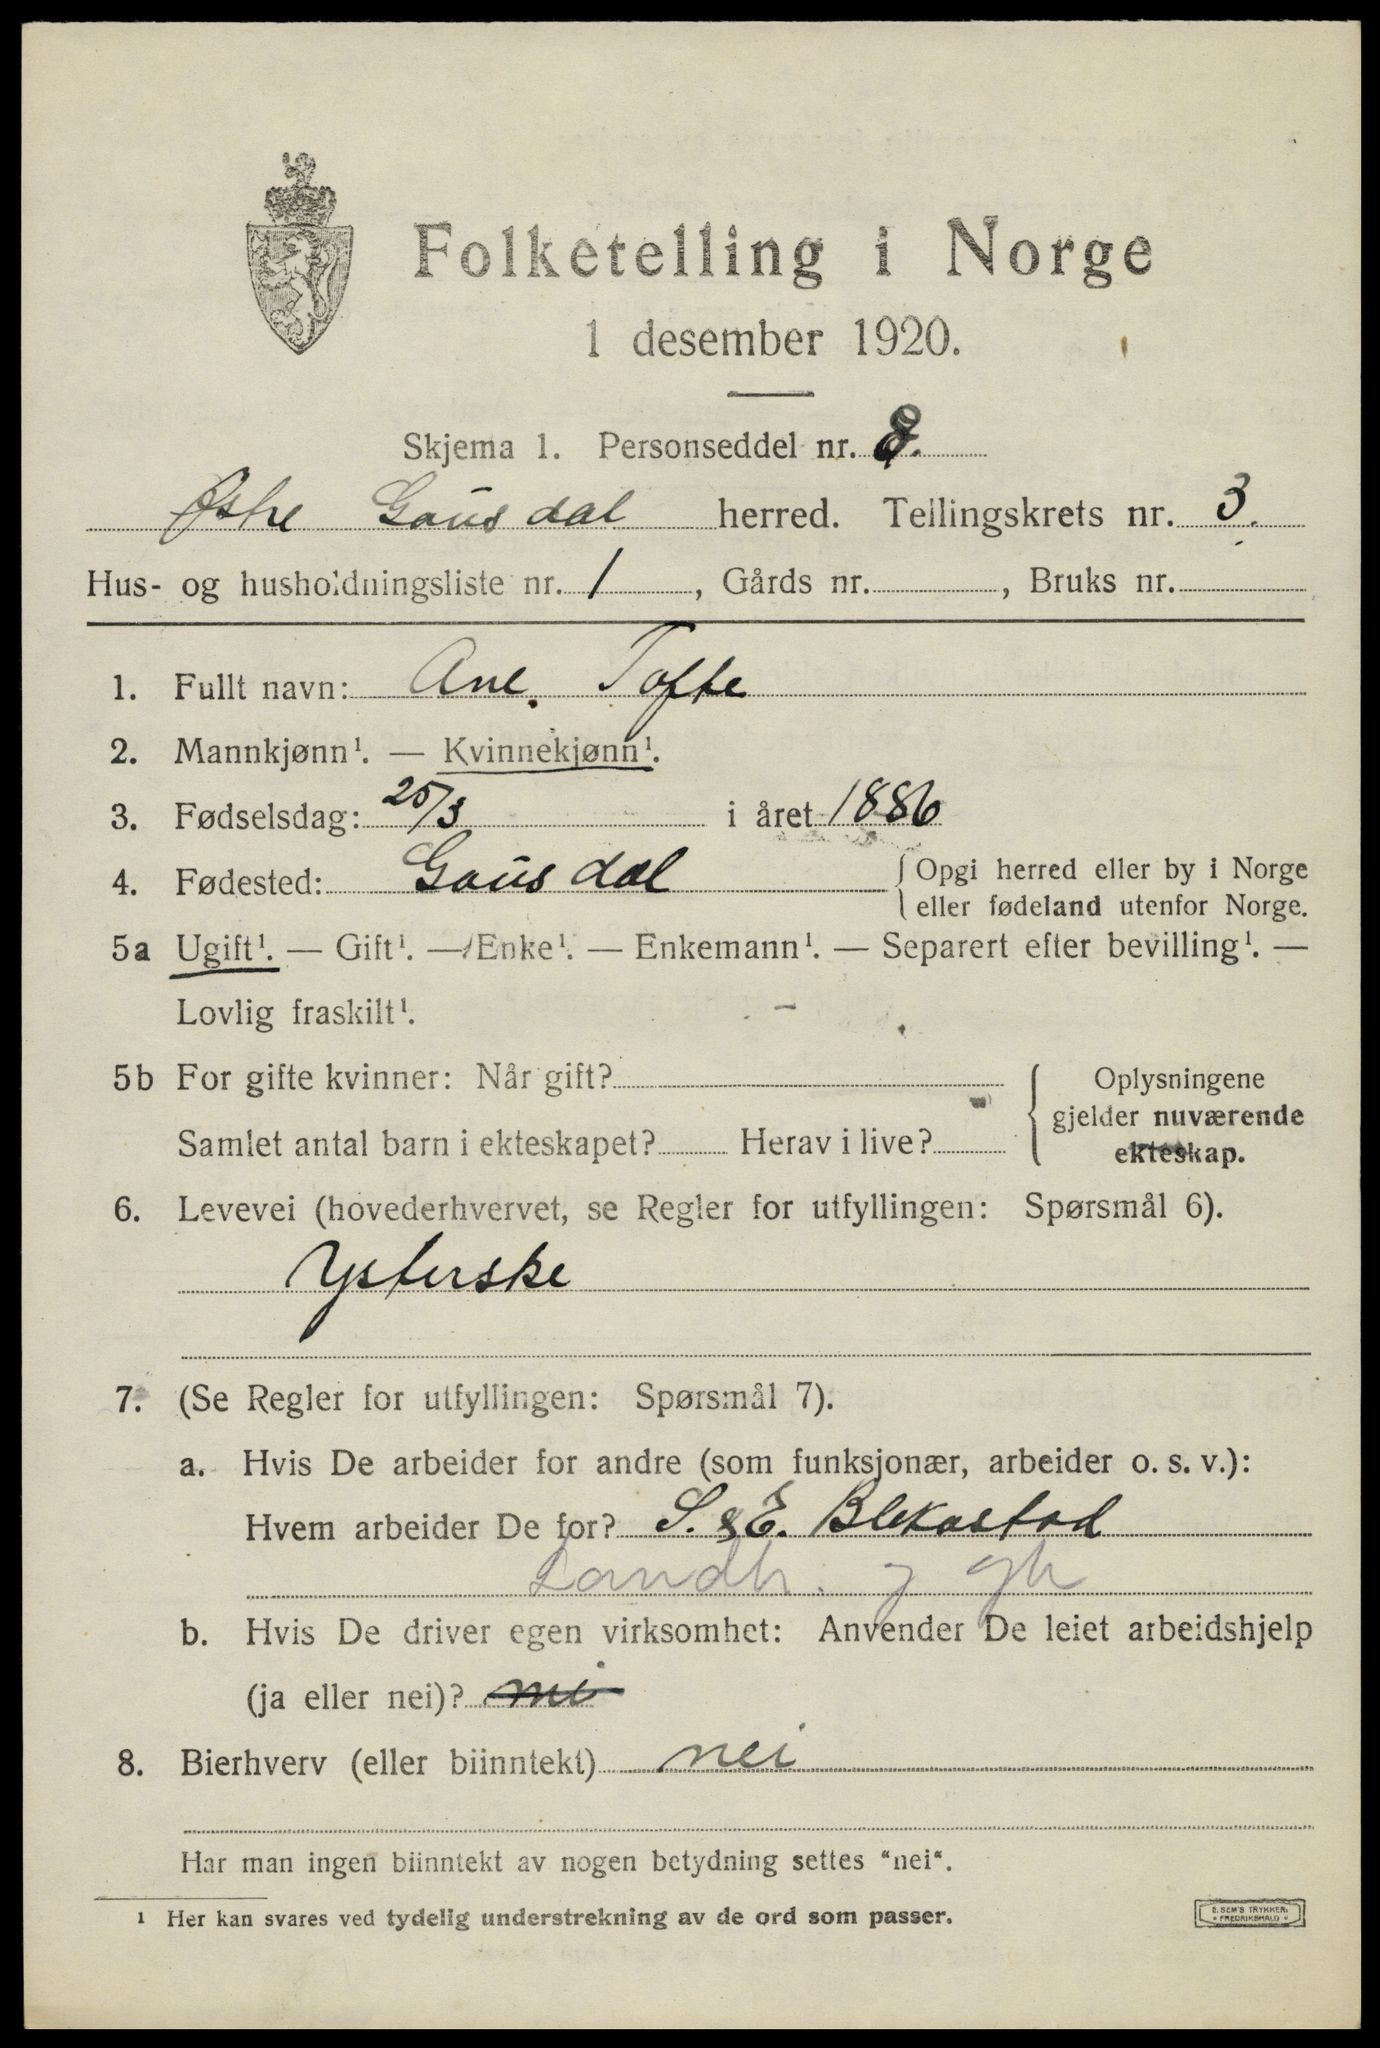 Folketelling i Norge
1 desember 1920.
Skjema 1. Personseddel nr. 8.
Østre Gausdal herred. Tellingskrets nr. 3.
Hus- og husholdningsliste nr. 1, Gårds nr. , Bruks nr.
1. Fullt navn: Ane Tofte
2. Mannkjønn¹. — Kvinnekjønn¹.
3. Fødselsdag: 25/3 i året 1886
4. Fødested: Gausdal { Opgi herred eller by i Norge
eller fødeland utenfor Norge.
5a Ugift¹. — Gift¹. — Enke¹. — Enkemann¹. — Separert efter bevilling¹. —
Lovlig fraskilt¹.
5b For gifte kvinner: Når gift? { Oplysningene
gjelder nuværende
Samlet antal barn i ekteskapet? Herav i live? ekteskap.
6. Levevei (hovederhvervet, se Regler for utfyllingen: Spørsmål 6).
Ysterske
7. (Se Regler for utfyllingen: Spørsmål 7).
a. Hvis De arbeider for andre (som funksjonær, arbeider o. s. v.):
Hvem arbeider De for? S. & E. Blekastad
Landh. og gb
b. Hvis De driver egen virksomhet: Anvender De leiet arbeidshjelp
(ja eller nei)? nei
8. Bierhverv (eller biinntekt) nei
Har man ingen biinntekt av nogen betydning settes "nei".
¹ Her kan svares ved tydelig understrekning av de ord som passer.
E. SEM'S TRYKKERI
FREDRIKSHALD